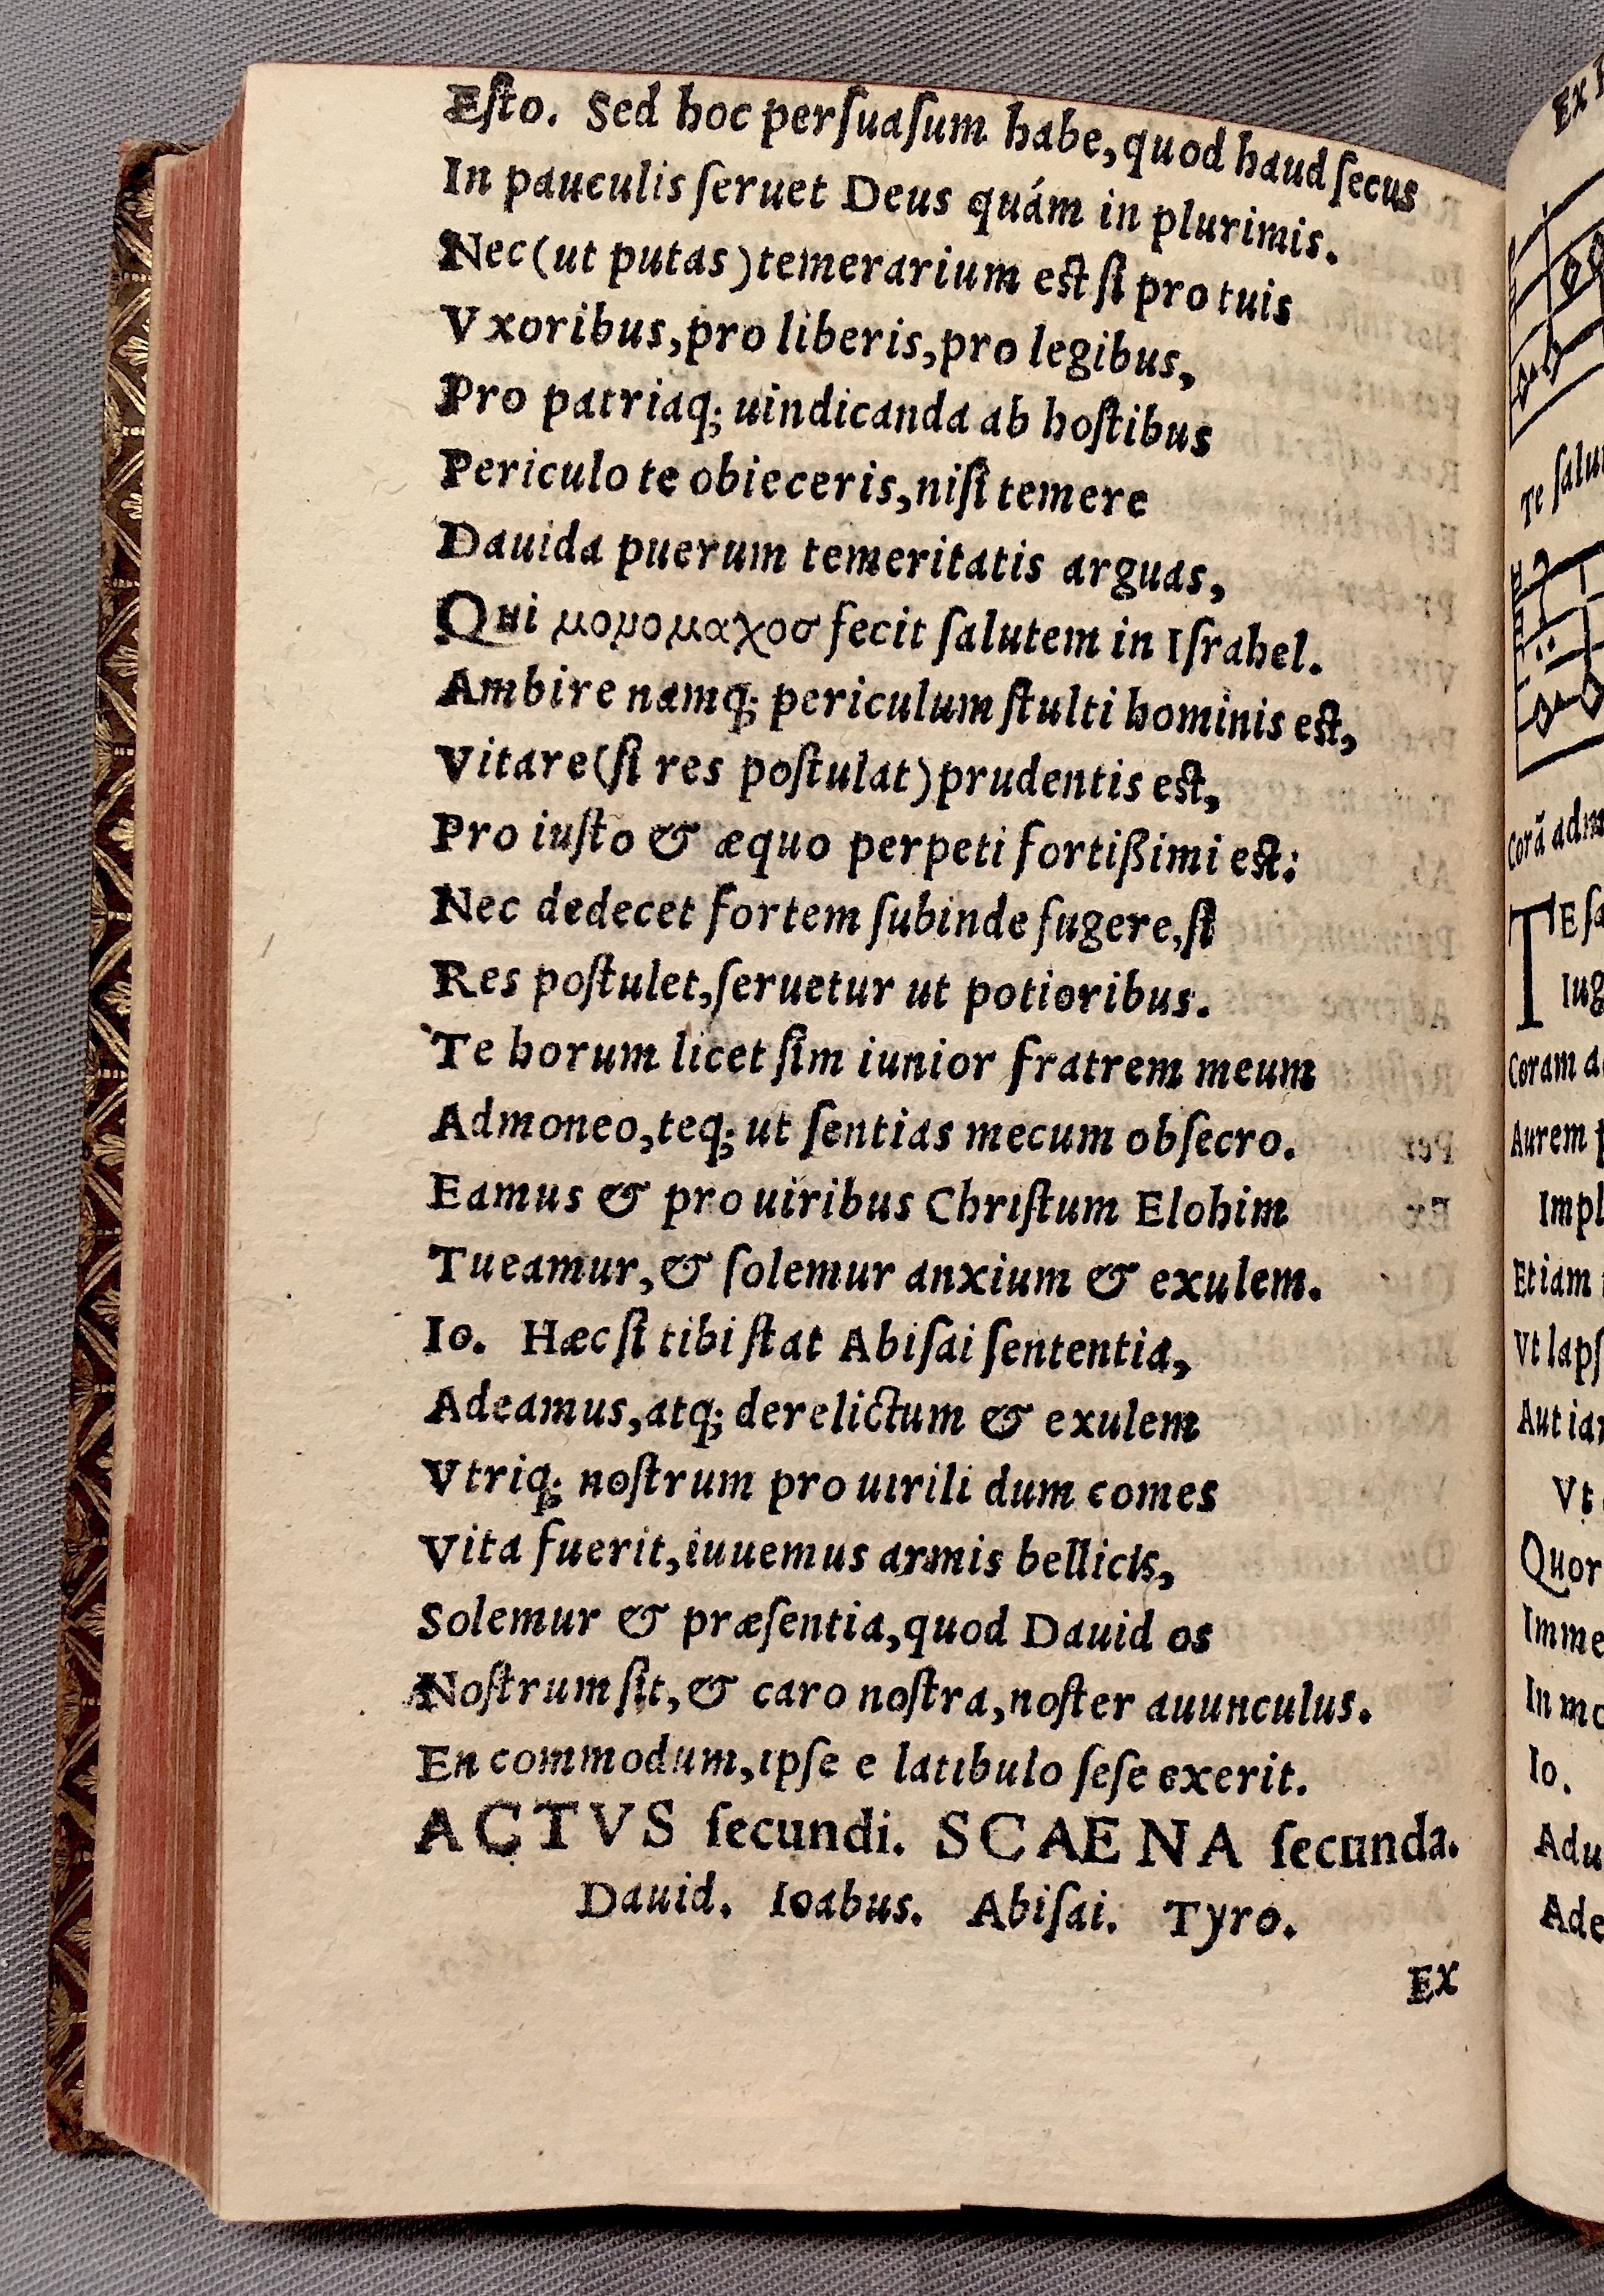 Eſto. Sed hoc perſuaſum habe, quod haud ſecus
In pauculis ſeruet Deus quám in plurimis.
Nec (ut putas) temerarium est ſi pro tuis
Vxoribus, pro liberis, pro legibus,
Pro patriaq; uindicanda ab hoſtibus
Periculo te obieceris, niſi temere
Dauida puerum temeritatis arguas,
Qui μονομαχοσ fecit ſalutem in Iſrahel.
Ambire namq; periculum ſtulti hominis est,
Vitare (ſi res poſtulat) prudentis est,
Pro iuſto & æquo perpeti fortißimi est:
Nec dedecet fortem ſubinde fugere, ſi
Res poſtulet, ſeruetur ut potioribus.
Te horum licet ſim iunior fratrem meum
Admoneo, teq; ut ſentias mecum obſecro.
Eamus & pro uiribus Chriſtum Elohim
Tueamur, & ſolemur anxium & exulem.
Io. Hæc ſi tibi ſtat Abiſai ſententia,
Adeamus, atq; derelictum & exulem
Vtriq; noſtrum pro uirili dum comes
Vita fuerit, iuuemus armis bellicis,
Solemur & præſentia, quod Dauid os
Noſtrum ſit, & caro noſtra, noſter auunculus.
En commodum, ipſe e latibulo ſeſe exerit.
ACTVS ſecundi. SCAENA ſecunda.
Dauid. Ioabus. Abiſai. Tyro.
Ex
Ex
Te
Corã
TE
Coram
Aurem
Etiam
Vt
Aut
Vt
In
Io.